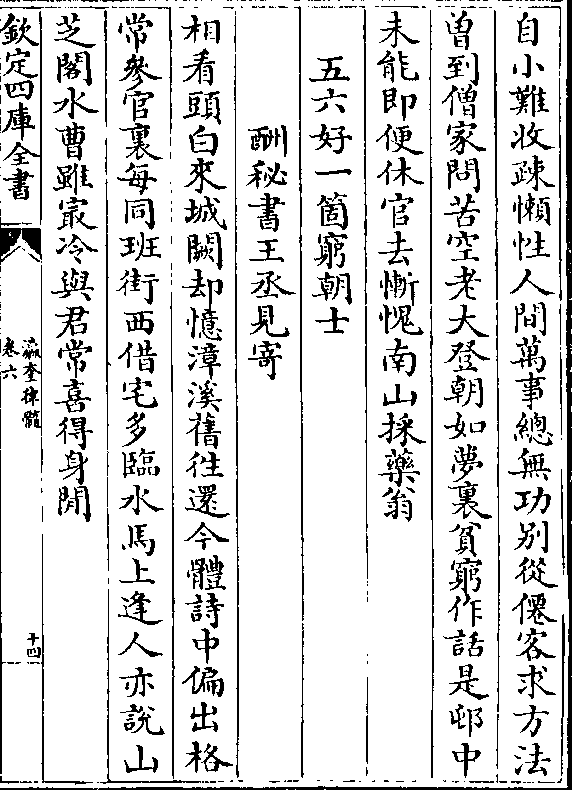 自小難收疎懶性人間萬事總無功别從僊客求方法
曽到僧家問苦空老大登朝如夢裏貧窮作話是邨中
未能即便休官去慚愧南山採藥翁
五六好一箇窮朝士
酬秘書王丞見寄
相看頭白來城闕却憶漳溪舊徃還今體詩中偏出格
常參官裏每同班街西借宅多臨水馬上逢人亦說山
芝閣水曹雖㝡冷與君常喜得身閒
欽定四庫全書
瀛奎律髓
卷六
十四